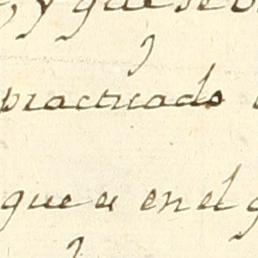 y que se
practicado
que es en el